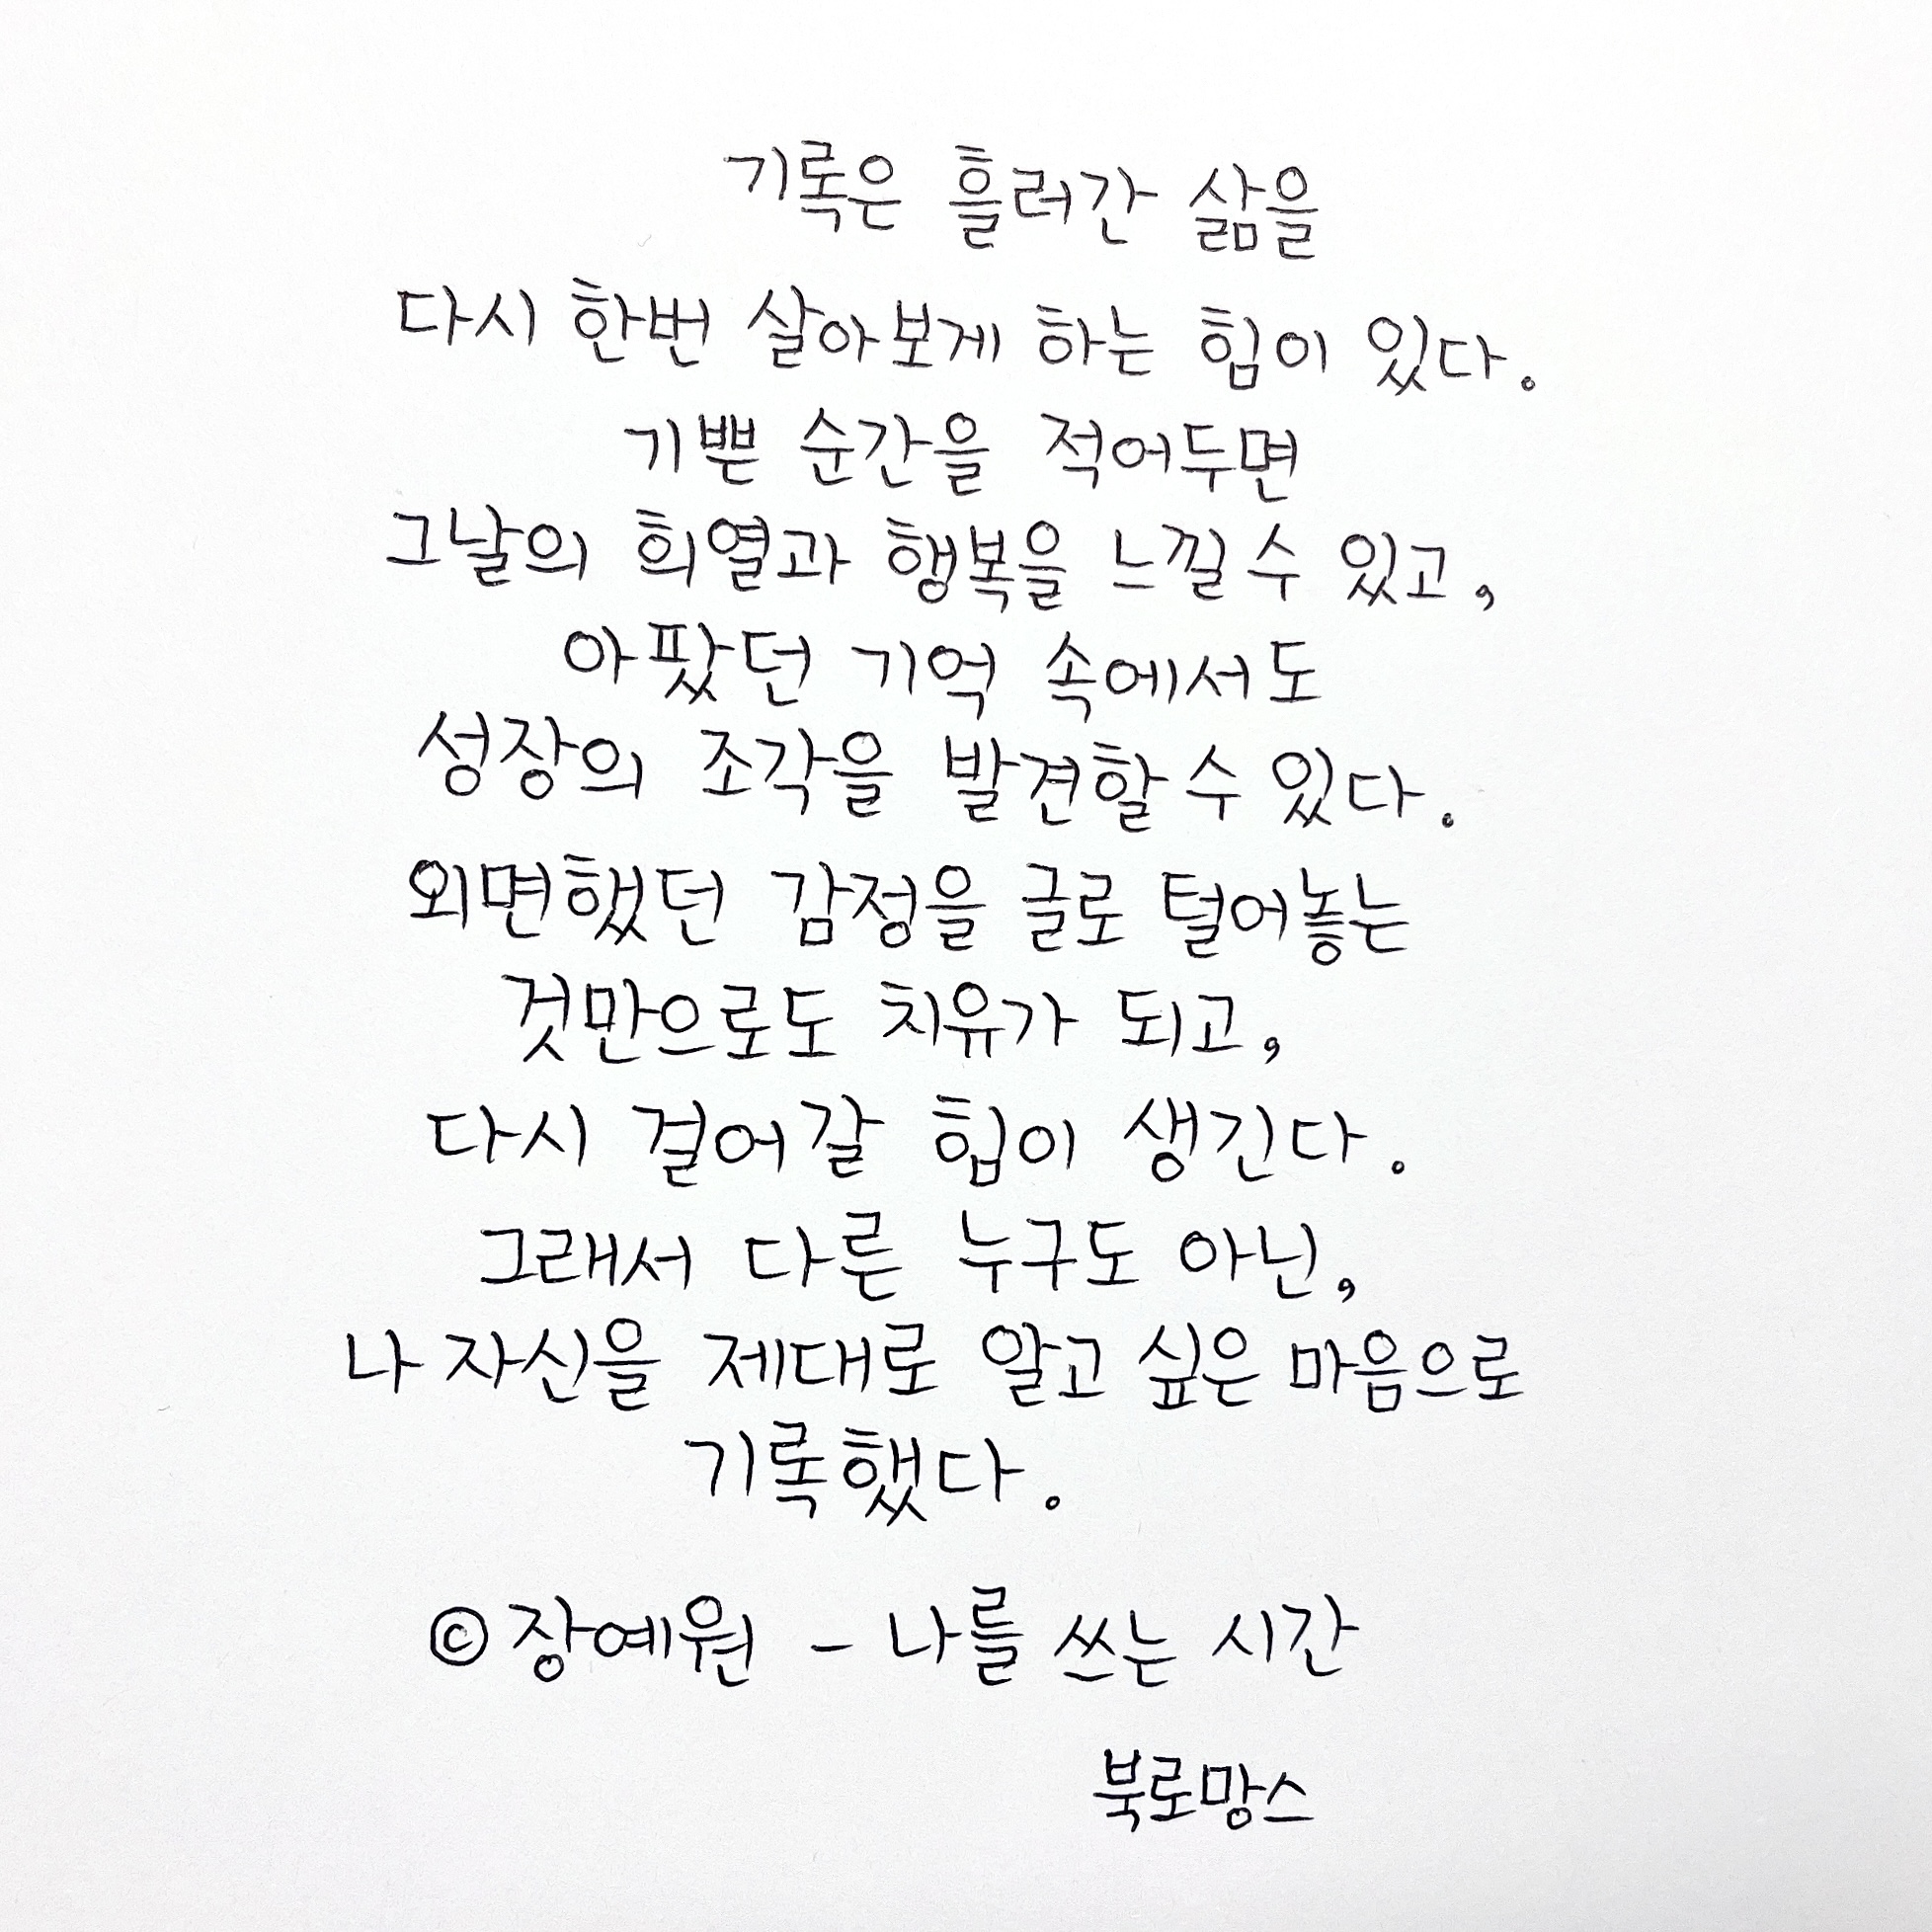 기록은 흘러간 삶을
다시 한번 살아보게 하는 힘이 있다.
기쁜 순간을 적어두면
그날의 희열과 행복을 느낄 수 있고,
아팠던 기억 속에서도
성장의 조각을 발견할 수 있다.
외면했던 감정을 글로 털어놓는
것만으로도 치유가 되고,
다시 걸어갈 힘이 생긴다.
그래서 다른 누구도 아닌,
나 자신을 제대로 알고 싶은 마음으로
기록했다.
© 장예원 - 나를 쓰는 시간
북로망스